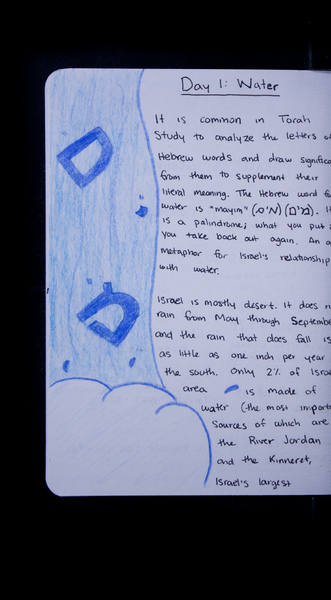 Day 1: Water
It is common in Torah
Study to analyze the letters o
Hebrew words and draw significa
from them to supplement their
literal meaning. The Hebrew word f
water is "mayim" (מ'י'ם) (מים). I
is a palindrome; what you put
you take back out again. An a
metaphor for Israel's relationship
with water.
Israel is mostly desert. It does n
rain from May through Septembe
and the rain that does fall is
as little as one inch per year
the south. Only 2% of Isra
area is made of
water (the most import
Sources of which are
the River Jordan
and the Kinneret,
Israel's largest
ם
מ